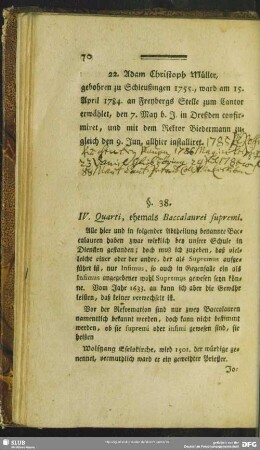 70
22. Adam Christoph Müller,
gebohren zu Schleußingen 1755., ward am 15.
April 1784. an Freybergs Stelle zum Cantor
erwählet, den 7. May b. J. in Dreßden confir-
miret, und mit dem Rektor Biedermann zu-
gleich den 9. Jun. allhier installiret.
§. 38.
IV. Quarti, ehemals Baccalaurei supremi.
Alle hier und in folgender Abtheilung benannte Bac-
calaureen haben zwar wirklich bey unsrer Schule in
Diensten gestanden; doch muß ich zugeben, daß viel-
leicht einer oder der andre, der als Supremus aufge-
führt ist, nur Infimus, so auch in Gegentheile ein als
Infimus angegebener wohl Supremus gewesen seyn kön-
ne. Vom Jahr 1633. an kann ich aber die Gewähr
leisten, daß keiner verwechselt ist.
Vor der Reformation sind nur zwey Baccalaureen
namentlich bekannt worden, doch kann nicht bestimmt
werden, ob sie supremi oder infimi gewesen sind, sie
heißen
Wolfgang Eselskirche, wird 1501. der würdige ge-
nennet, vermuthlich ward er ein geweihter Priester.
Jo:
SLUB
DFG